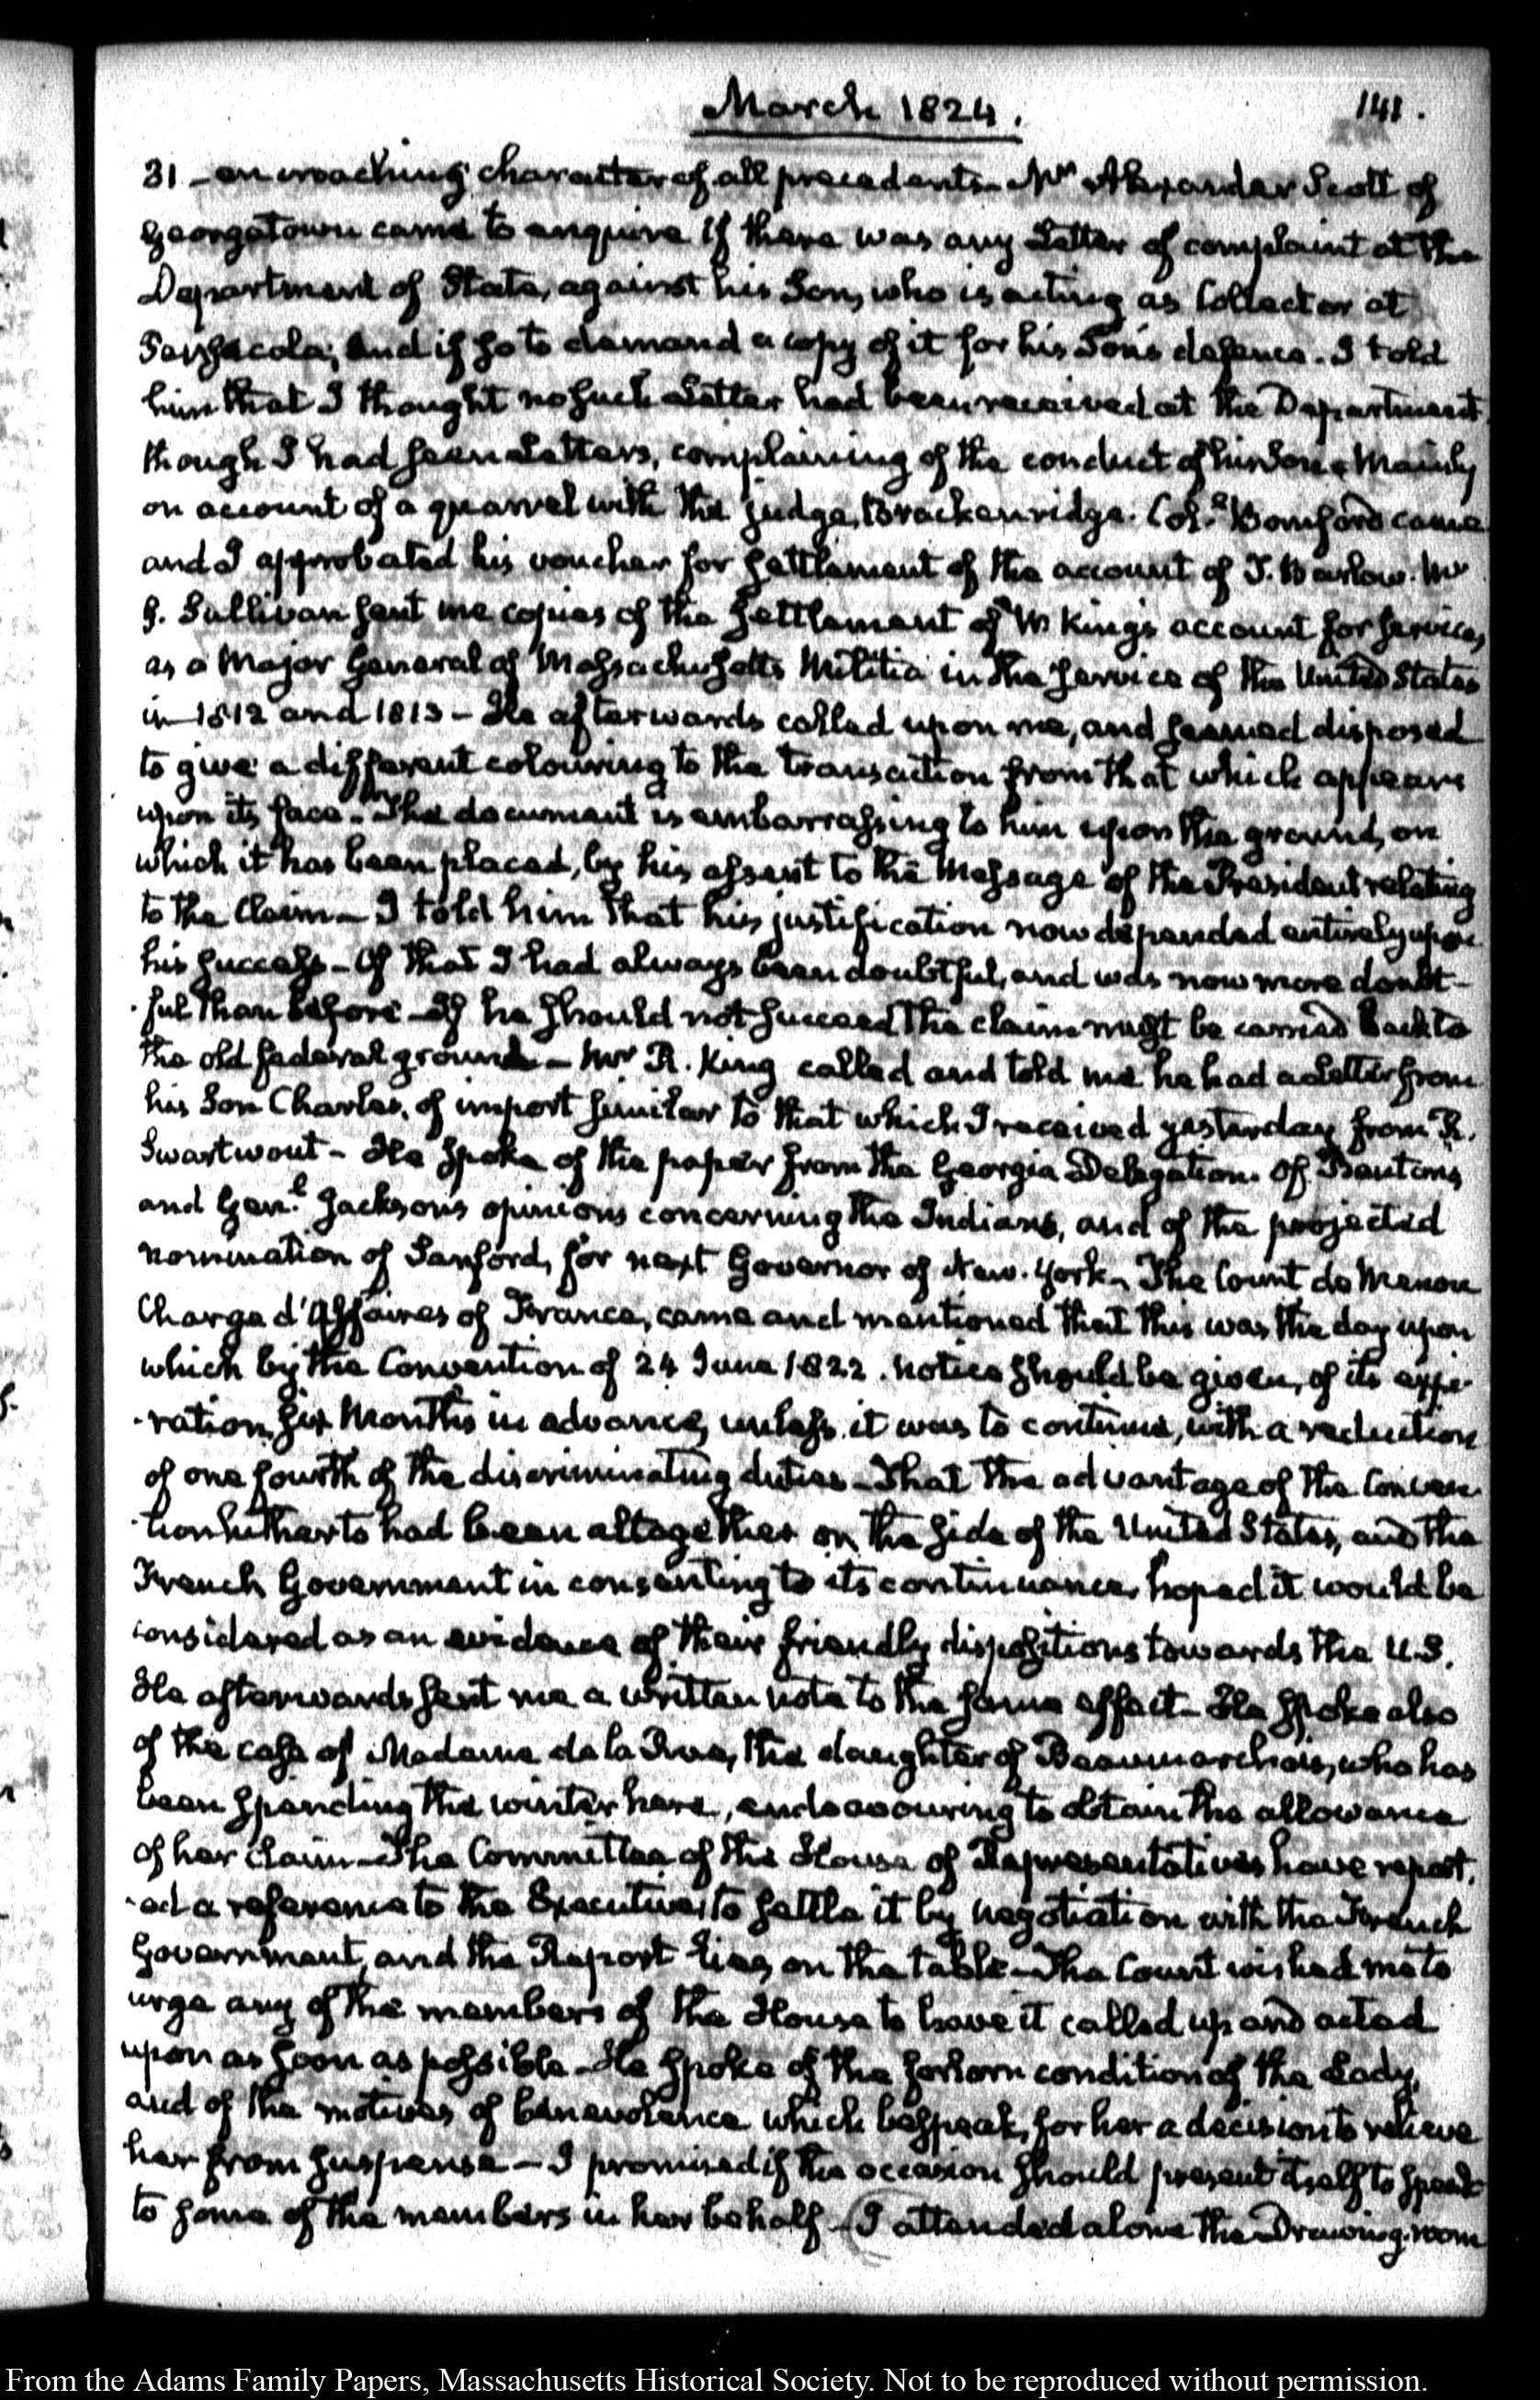 March 1824.
141.
31 - encroaching character of all precedents. Mr Alexander Scott of
Georgetown came to enquire if there was any Letter of complaint at the
Department of State, against his Son, who is acting as Collector at
Pensacola; and if so to demand a copy of it for his Son's defence. I told
him that I thought no such Letter had been received at the Department
though I had seen Letters, complaining of the conduct of his Son, mainly
on account of a quarrel with the judge, Brackenridge. Col.l Bomford came
and I approbated his voucher for settlement of the account of T. Barlow. Mr
G. Sullivan sent me copies of the settlement of W King's account for services,
as a Major General of Massachusetts Militia in the service of the United States
in 1812 and 1813 - He afterwards called upon me, and seemed disposed
to give a different colouring to the transaction from that which appears
upon its face. The document is embarrassing to him upon the ground, on
which it has been placed, by his assent to the Message of the President relating
to the Claim - I told him that his justification now depended entirely upon
his success - Of that I had always been doubtful, and was now more doubt-
-ful than before - If he should not succeed the claim must be carried back to
the old federal ground - Mr R. King called and told me he had a Letter from
his Son Charles, of import similar to that which I received yesterday from R.
Swartwout - He spoke of the paper from the Georgia Delegation. Of Benton's
and Gen.l Jackson's opinions concerning the Indians, and of the projected
nomination of Sanford, for next Governor of New-York. The Count de Menou
Chargé d'Affaires of France, came and mentioned that this was the day upon
which by the Convention of 24 June 1822. notice should be given, of its expi-
-ration, six Months in advance, unless it was to continue, with a reduction
of one fourth of the discriminating duties - That the advantage of the Conven-
-tion hitherto had been altogether on the side of the United States, and the
French Government in consenting to its continuance, hoped it would be
considered as an evidence of their friendly dispositions towards the U.S.
He afterwards sent me a written note to the same effect - He spoke also
of the case of Madame de la Rue, the daughter of Beaumarchais, who has
been spending the winter here, endeavouring to obtain the allowance
of her claim - The Committee of the House of Representatives have report-
-ed a reference to the Executive, to settle it by negotiation with the French
Government, and the Report lies on the table - The Count wished me to
urge any of the members of the House to have it called up and acted
upon as soon as possible - He spoke of the forlorn condition of the Lady,
and of the motives of benevolence which bespeak, for her a decision to relieve
her from suspense - I promised if the occasion should present itself to speak
to some of the members in her behalf - I attended alone the Drawing-room
From the Adams Family Papers, Massachusetts Historical Society. Not to be reproduced without permission.